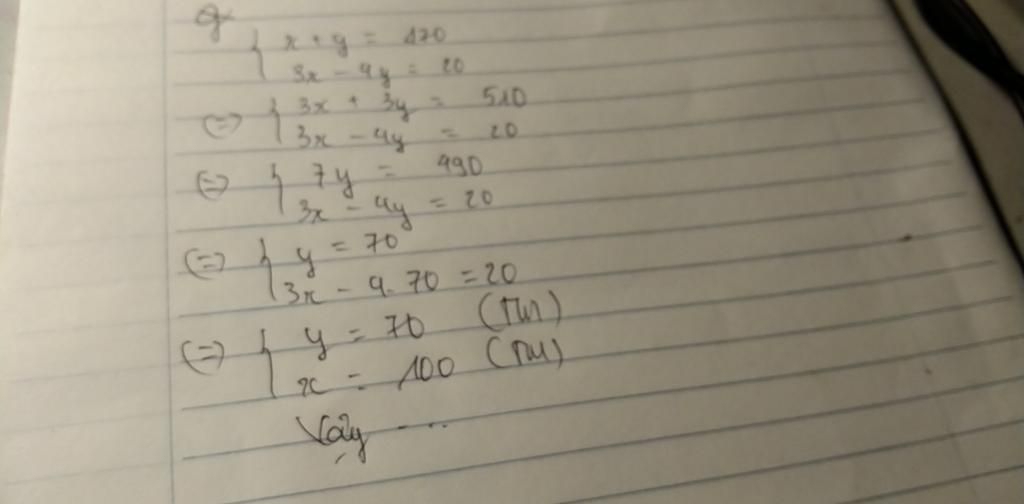 x + y = 170
3x - 4y = 20
(=) 3x + 3y = 510
3x - 4y = 20
(=) 7y = 490
3x - 4y = 20
(=) y = 70
3x - 4.70 = 20
(=) y = 70 (TM)
x = 100 (TM)
Vậy ...